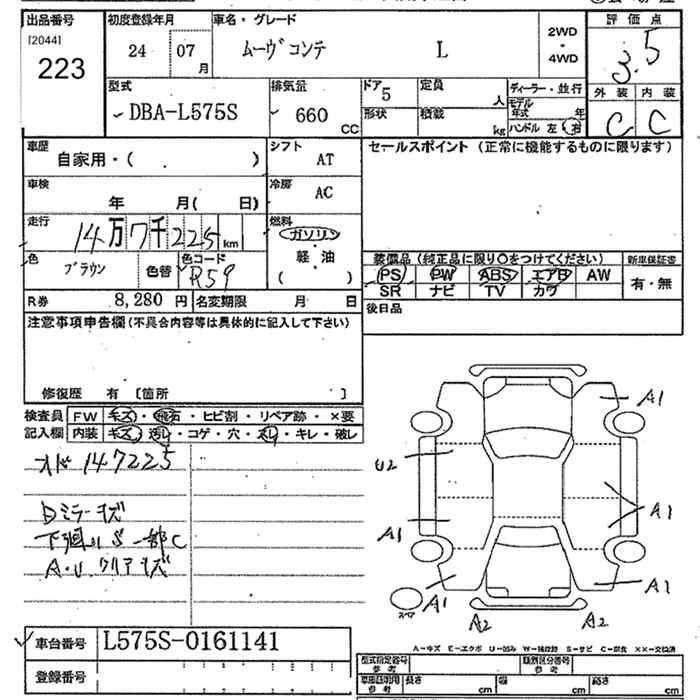 出品番号 初度登録年月 車名・グレード 評価点
[2044] 223 24 07月 ムーヴコンテ L 2WD・4WD 3.5
外装 内装
C C
型式 排気量 ドア 定員 ディーラー・並行
DBA-L575S 660 CC 5 人 モデル年式 年
形状 積載 kg ハンドル 左 右
車歴 シフト セールスポイント (正常に機能するものに限ります)
自家用・( ) AT
車検 冷房
年 月( 日) AC
走行 燃料
14万7千225km ガソリン
軽・油
( )
色 色替 色コード
ブラウン R59
装備品 (純正品に限り○をつけてください) 新車保証書
PS PW ABS エアB AW 有・無
SR ナビ TV カワ
R券 8,280円 名変期限 月 日 後日品
注意事項申告欄(不具合内容等は具体的に記入して下さい)
修復歴 有 [箇所 ]
検査員 FW キズ・飛石・ヒビ割・リペア跡・×要
記入欄 内装 キズ・汚レ・コゲ・穴・スレ・キレ・破レ
オド 147225
Dミラーキズ
下廻り S 一部C
A・U クリアキズ
A1
U2
A1 A1
A1 A1
スペア
A2 A2
車台番号 L575S-0161141
登録番号
A-キズ E-エクボ U-凹み W-補修跡 S-サビ C-腐食 ××-交換済
型式指定番号 類別区分番号
参考 参考
車両証明用 長さ 幅 高さ
参考 cm cm cm